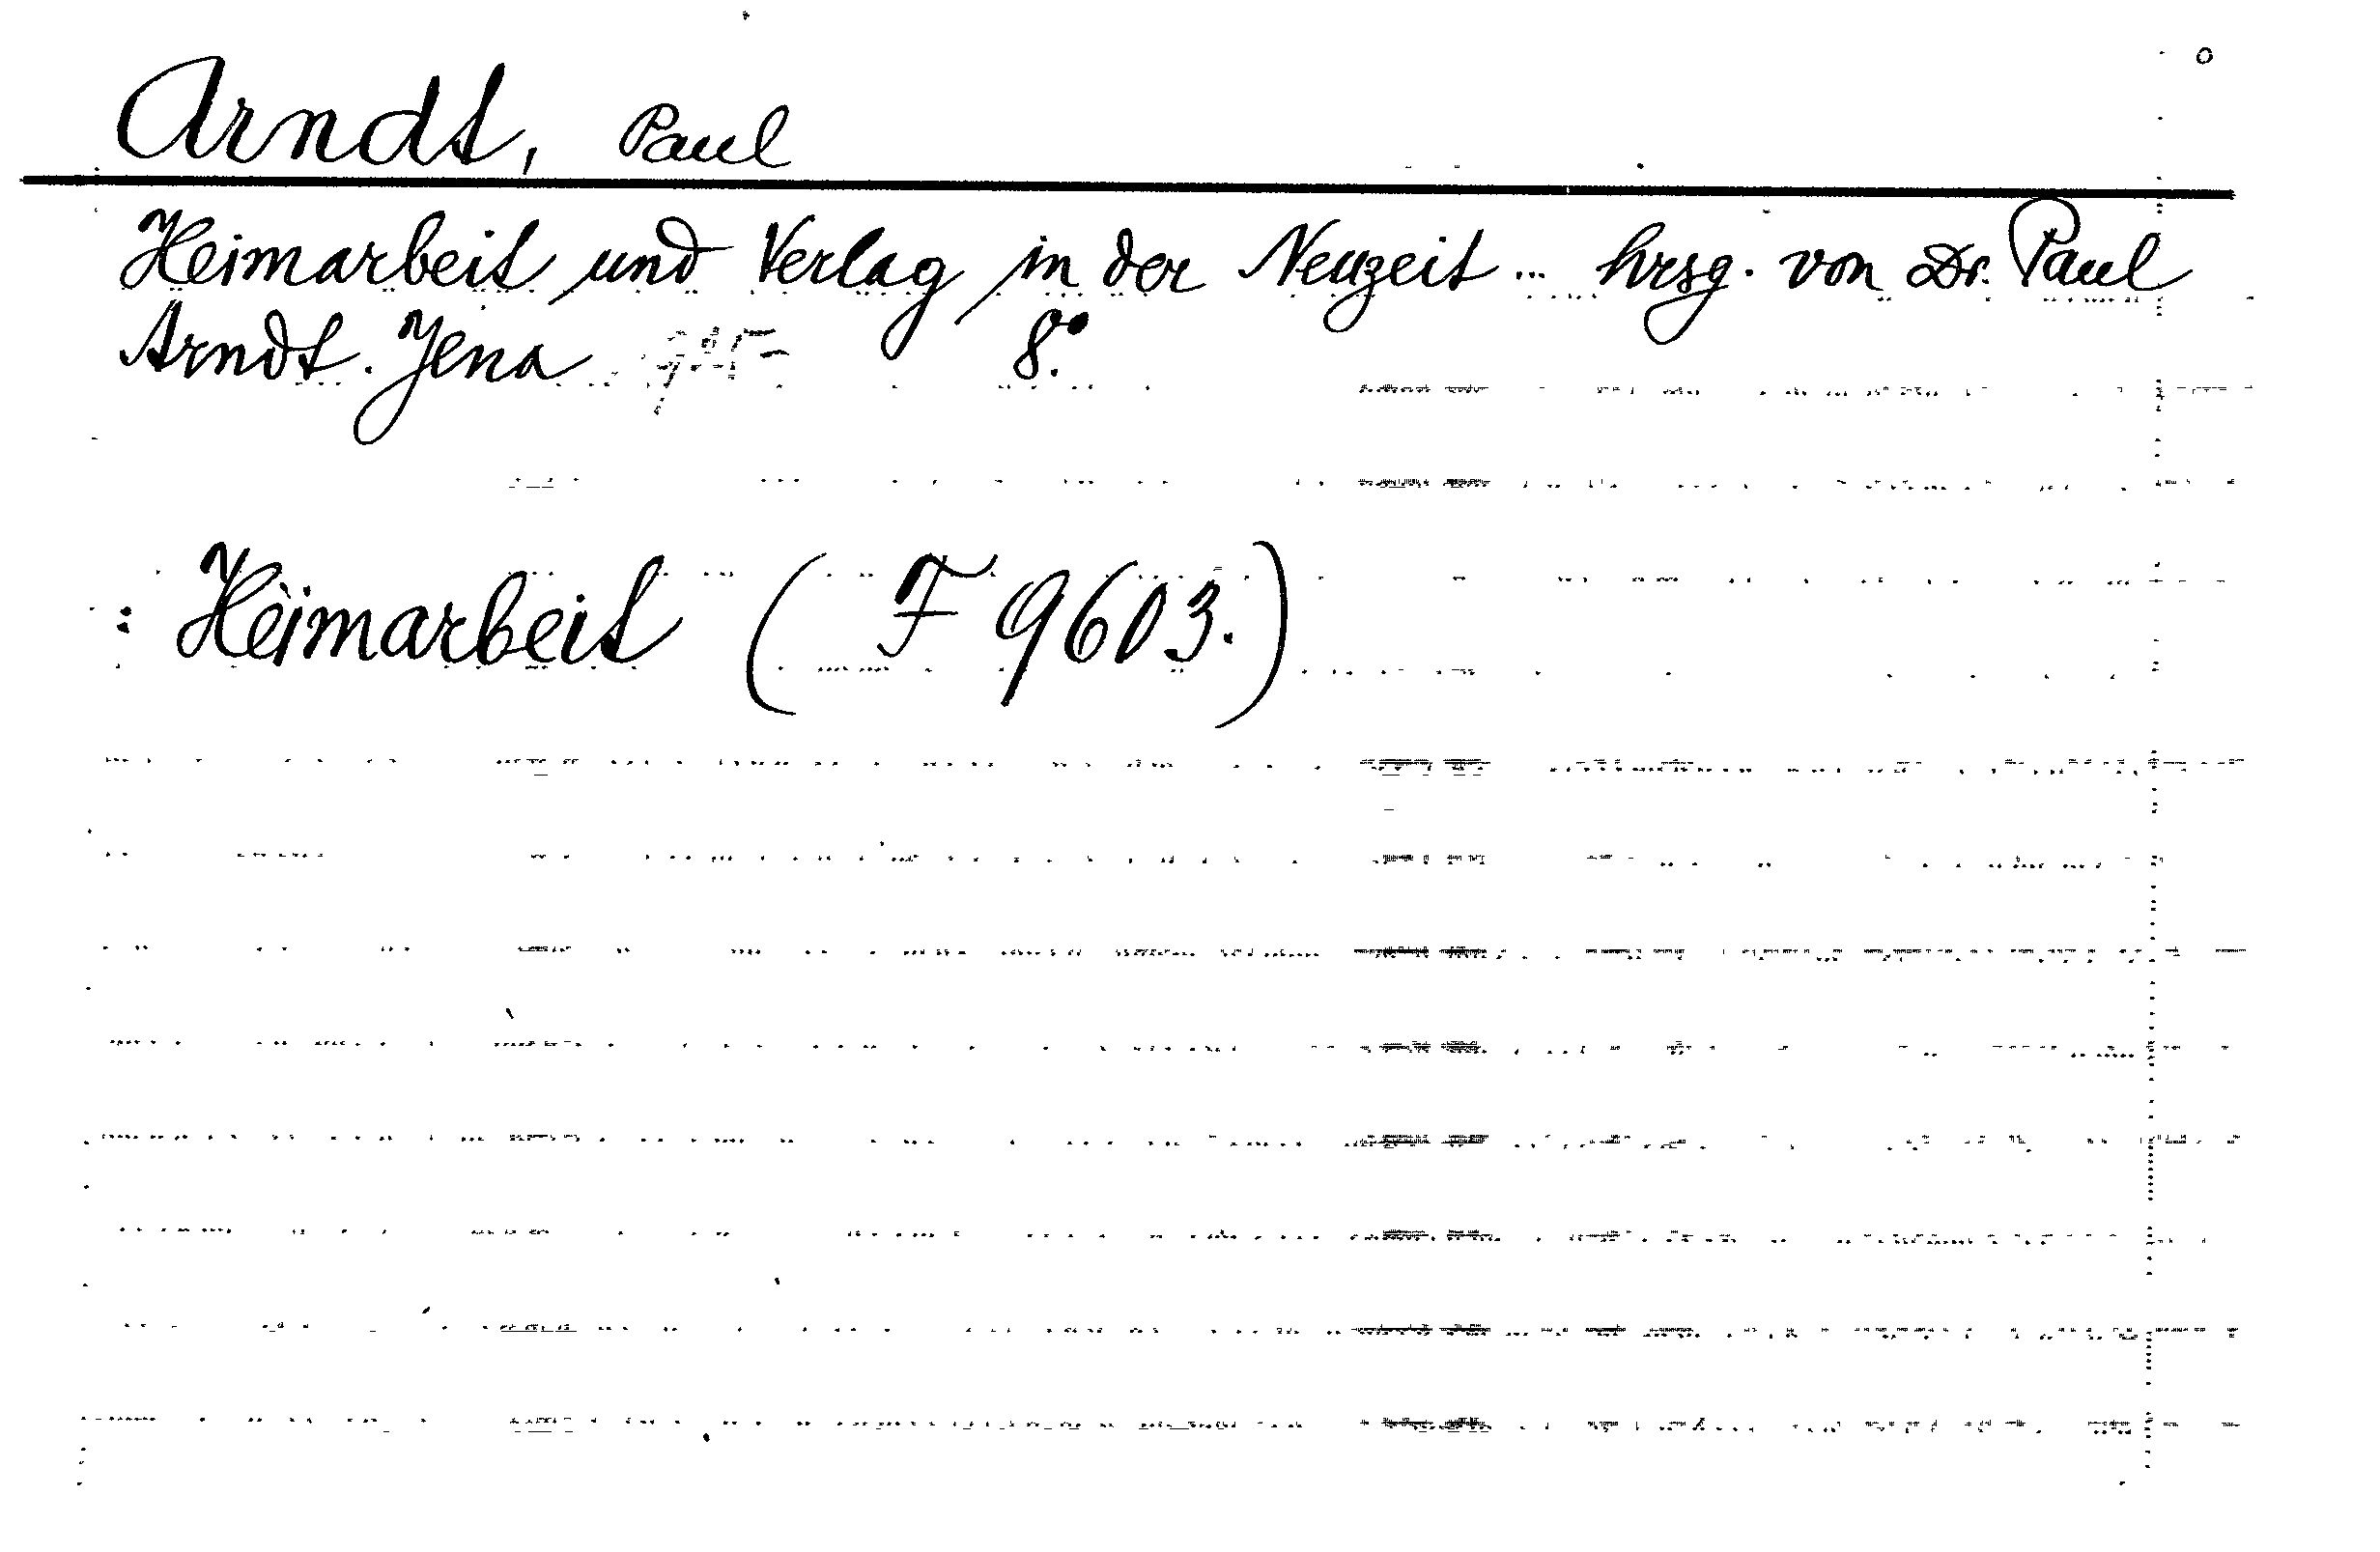 Arndt, Paul
Heimarbeit und Verlag in der Neuzeit ... hrsg. von Dr. Paul
Arndt. Jena 8°.
: Heimarbeit ( F 9603.)